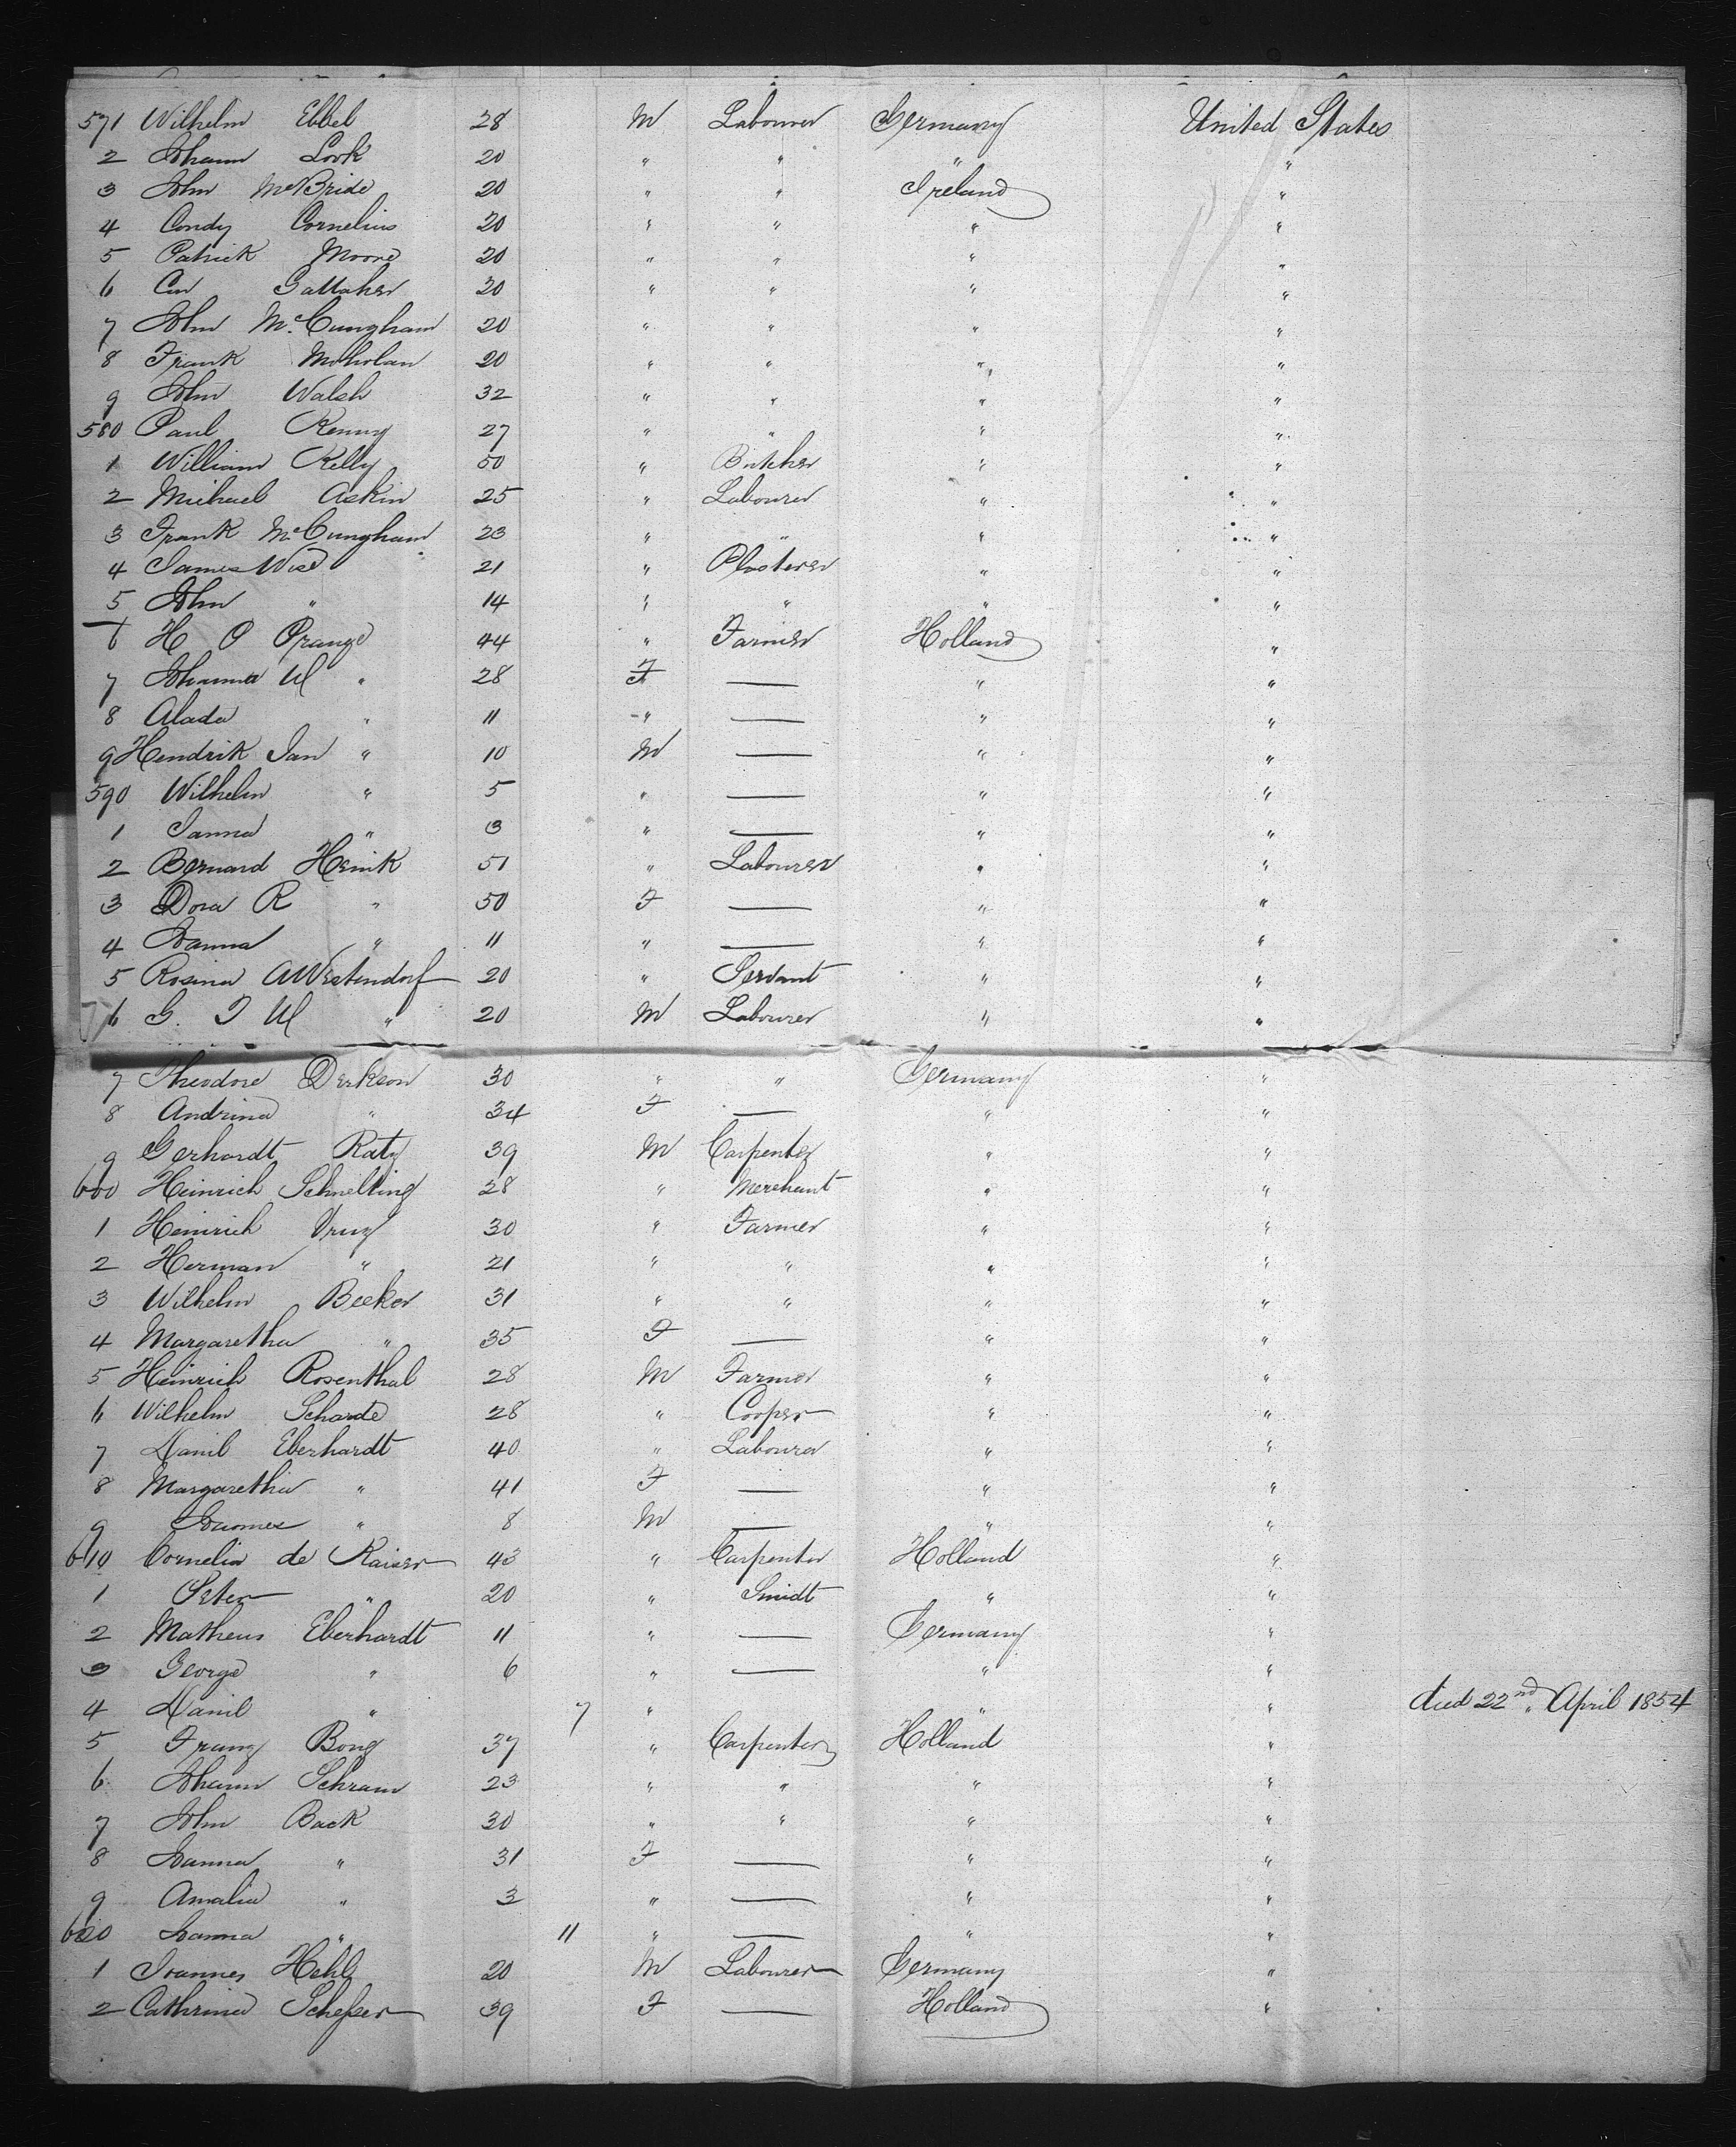 571 Wilhelm Ebbel 28 M Labourer Germany United States
2 Johann Look 20 " " " "
3 John McBride 20 " " Ireland "
4 Condy Cornelius 20 " " " "
5 Patrick Moore 20 " " " "
6 Gallaher 20 " " " "
7 John McCungham 20 " " " "
8 Frank 20 " " " "
9 John Walsh 32 " " " "
580 Paul Kenny 27 " " " "
1 William Kelly 50 " Butcher " "
2 Michael Askin 25 " Labourer " "
3 Frank McCungham 23 " " " "
4 James Wise 21 " Plasterer " "
5 John " 14 " " " "
6 H O Prange 44 " Farmer Holland "
7 Johanna W " 28 F — " "
8 Alada " 11 " — " "
9 Hendrik Jan " 10 M — " "
590 Wilhelm " 5 " — " "
1 Janna " 3 " — " "
2 Bernard Henik 51 " Labourer " "
3 Dora R " 50 F — " "
4 Hanna " 11 " — " "
5 Rosina A Westendorf 20 " Servant " "
6 G. J W " 20 M Labourer " "
7 Theodore Derkson 30 " " Germany "
8 Andrina " 34 F — " "
9 Gerhardt Raty 39 M Carpenter " "
600 Heinrich Schnelting 28 " Merchant " "
1 Heinrich 30 " Farmer " "
2 Herman " 21 " " " "
3 Wilhelm Beeker 31 " " " "
4 Margaretha " 35 F — " "
5 Heinrich Rosenthal 28 M Farmer " "
6 Wilhelm Scharde 28 " Cooper " "
7 Danil Eberhardt 40 " Labourer " "
8 Margaretha " 41 F — " "
9 " 8 M — " "
610 Cornelia de Kaiser 43 " Carpenter Holland "
1 Peter " 20 " Smidt " "
2 Matheus Eberhardt 11 " — Germany "
3 George " 6 " — " "
4 Danil " 7 " " " died 22nd April 1854
5 Franz Bong 37 " Carpenter Holland "
6 Johann Schram 23 " " " "
7 John Back 30 " " " "
8 Hanna " 31 F — " "
9 Amalia " 3 " — " "
620 Hanna " 11 " — " "
1 Joannes Hehl 20 M Labourer Germany "
2 Cathrina Schefser 39 F — Holland "